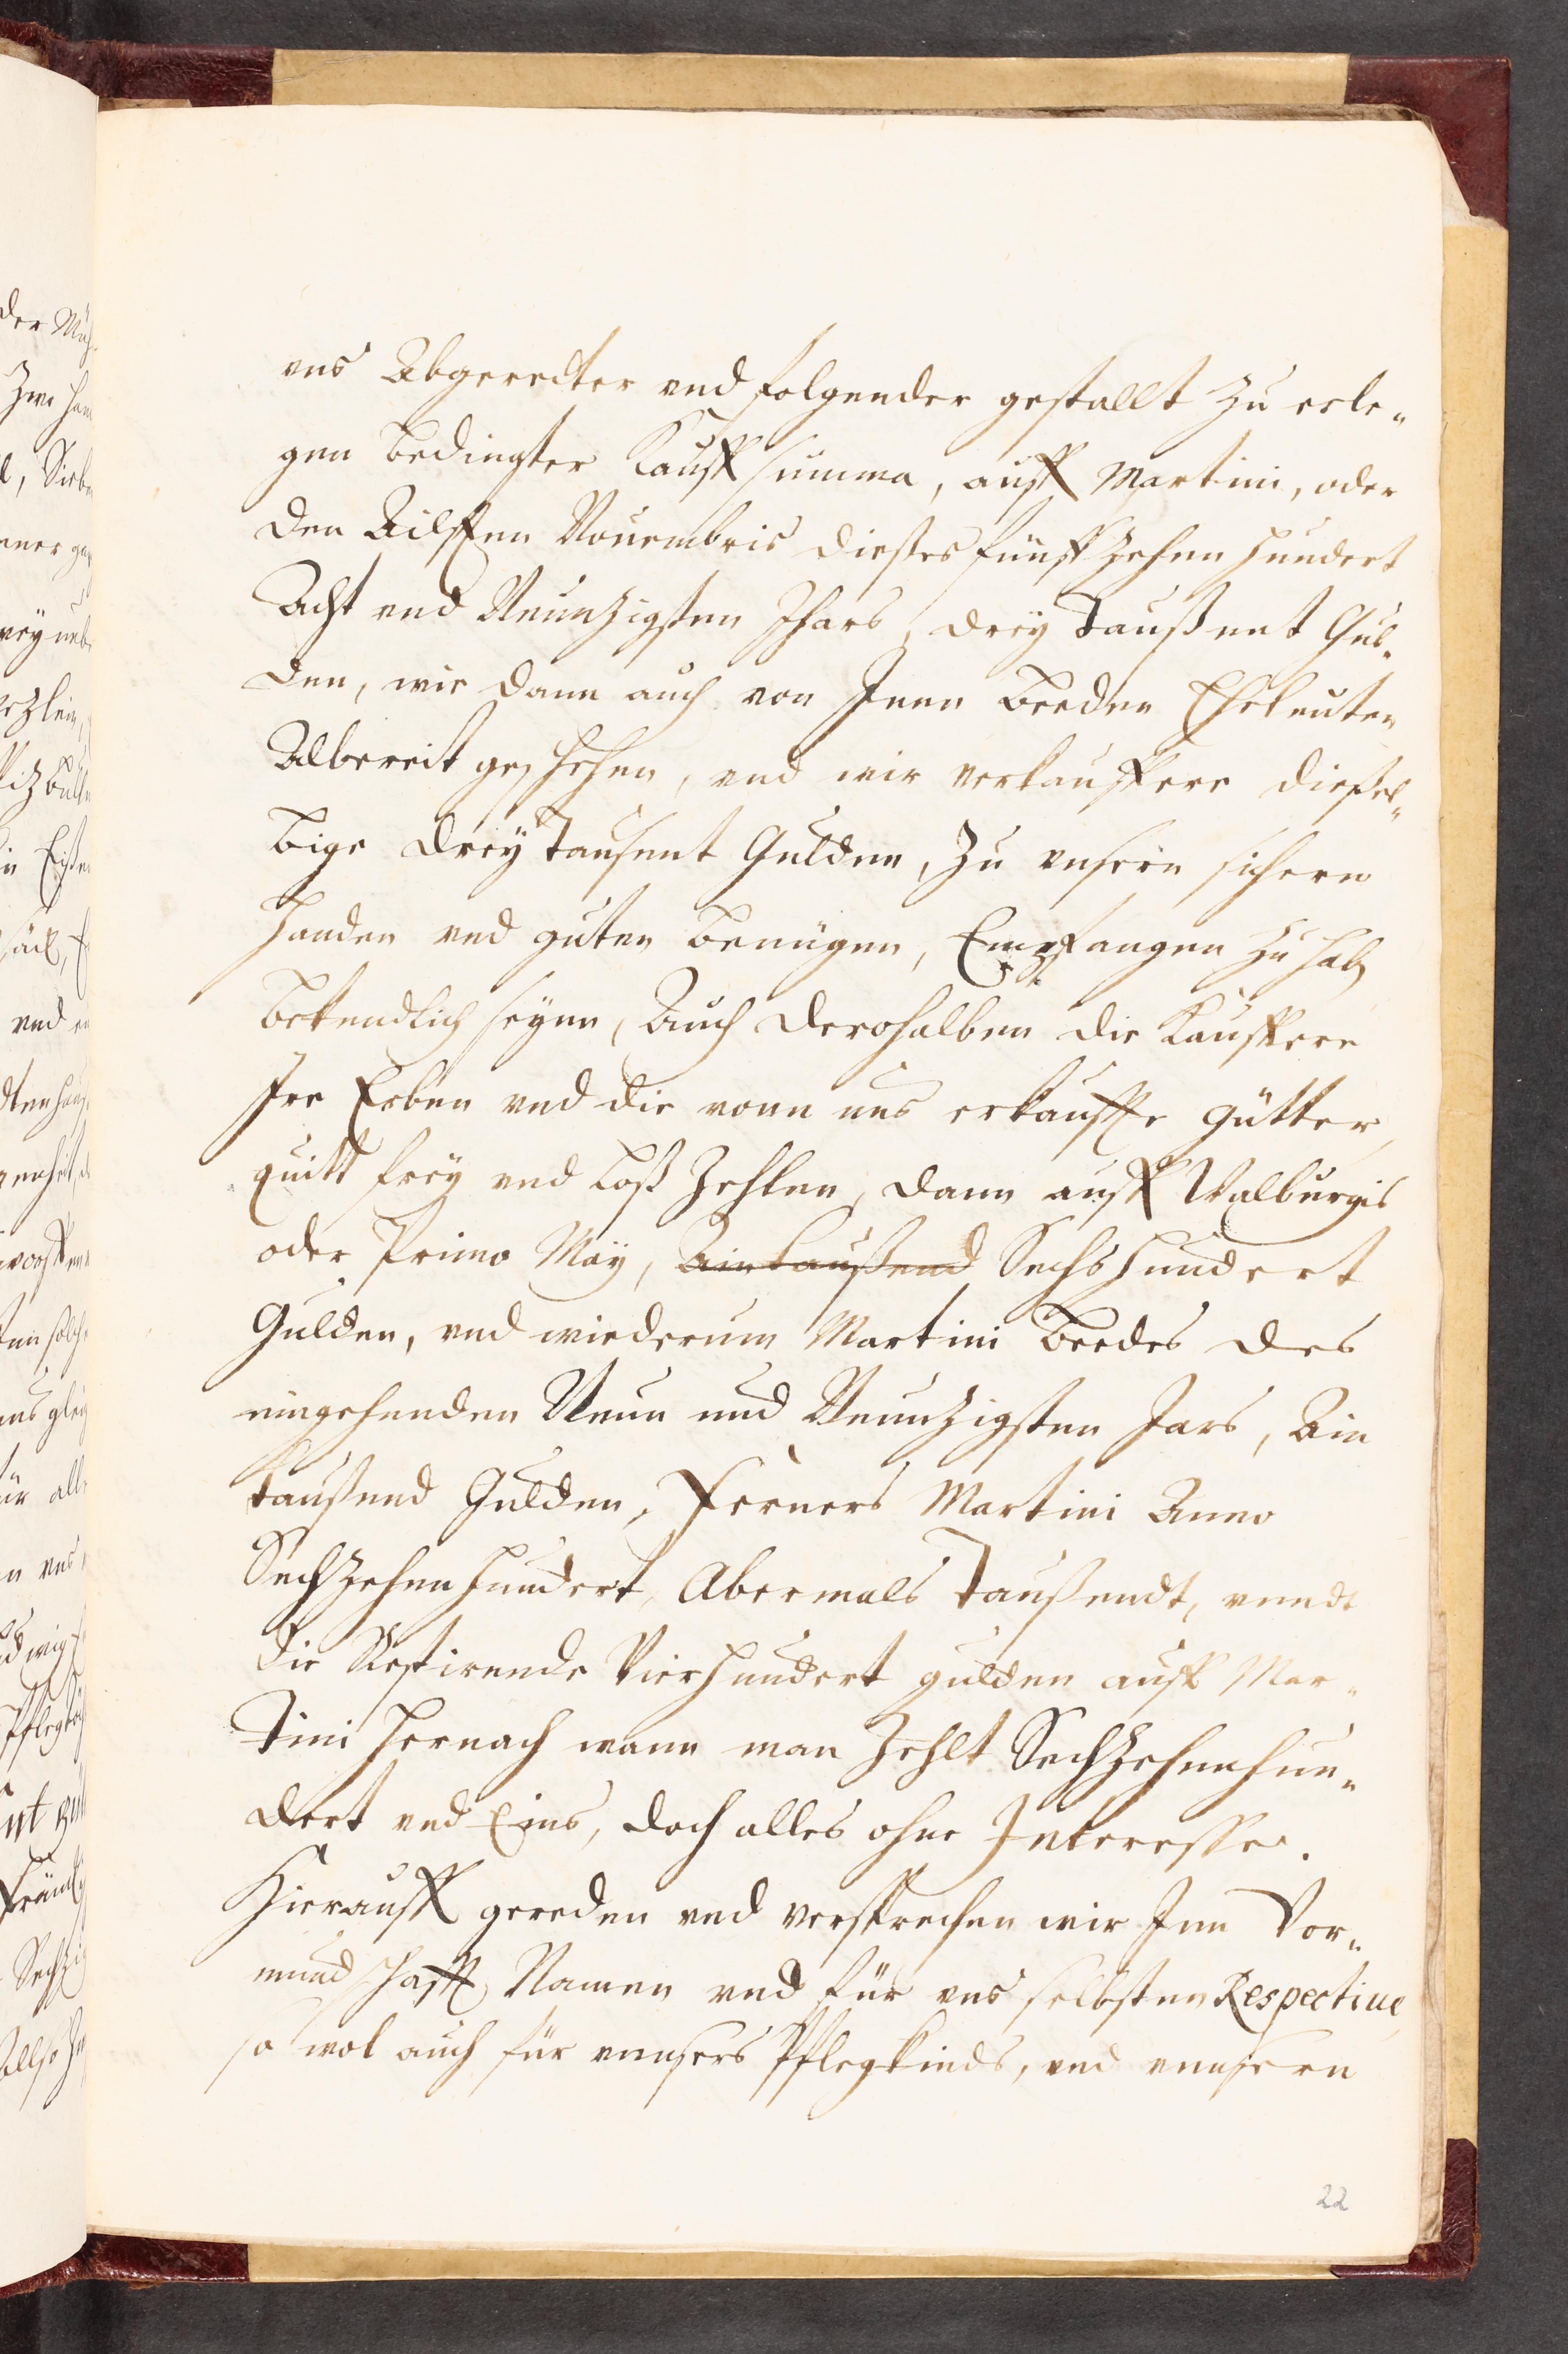 vns Abgeredter vnd folgender gestallt zu erle„
gen bedingter Kauff summa, auff Martini, oder
den Ailfften Nouembris dießes fünff zehen hundert
Acht vnd Neunzigsten Jhars, drey Taußent Gul„
den, wie dann auch von Jnen beeden Eheleuten
Albereit geschehen, vnd wir verkauffere dießel„
bige drey Tausent Gulden, zu vnsern sichern
Handen vnd guten benügen, Empfangen zu hab
bekendlich seyen, Auch derohalben die Kauffere
Jre Erben vnd die vonn uns erkauffte gütter,
quitt frey vnd Loß Zehlen, dann auff Walburgis
oder Primo May, Aintaußend Sechshundert
Gulden, vnd wiederum Martini beedes des
eingehenden Neun und Neunzigsten Jars, Ain
taußend Gulden, Ferners Martini Anno
Sechzehenhundert, Abermals Taußendt, vnndt
die Restirende Vierhundert gulden auff Mar„
Tini hernach wann man Zehlt Sechzehenhun„
dert vnd Eins, doch alles ohne Interesse.
Hierauff gereden vnd versprechen wir Jnn Vor„
mundschafft Namen vnd für vns selbsten Respectiue
so wol auch für vnnsers Pflegkinds, vnd vnnseren
22